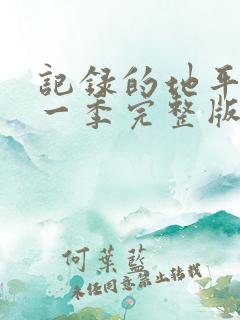 記録的地平
一季完整版
何葉藍
未经同意禁止转载